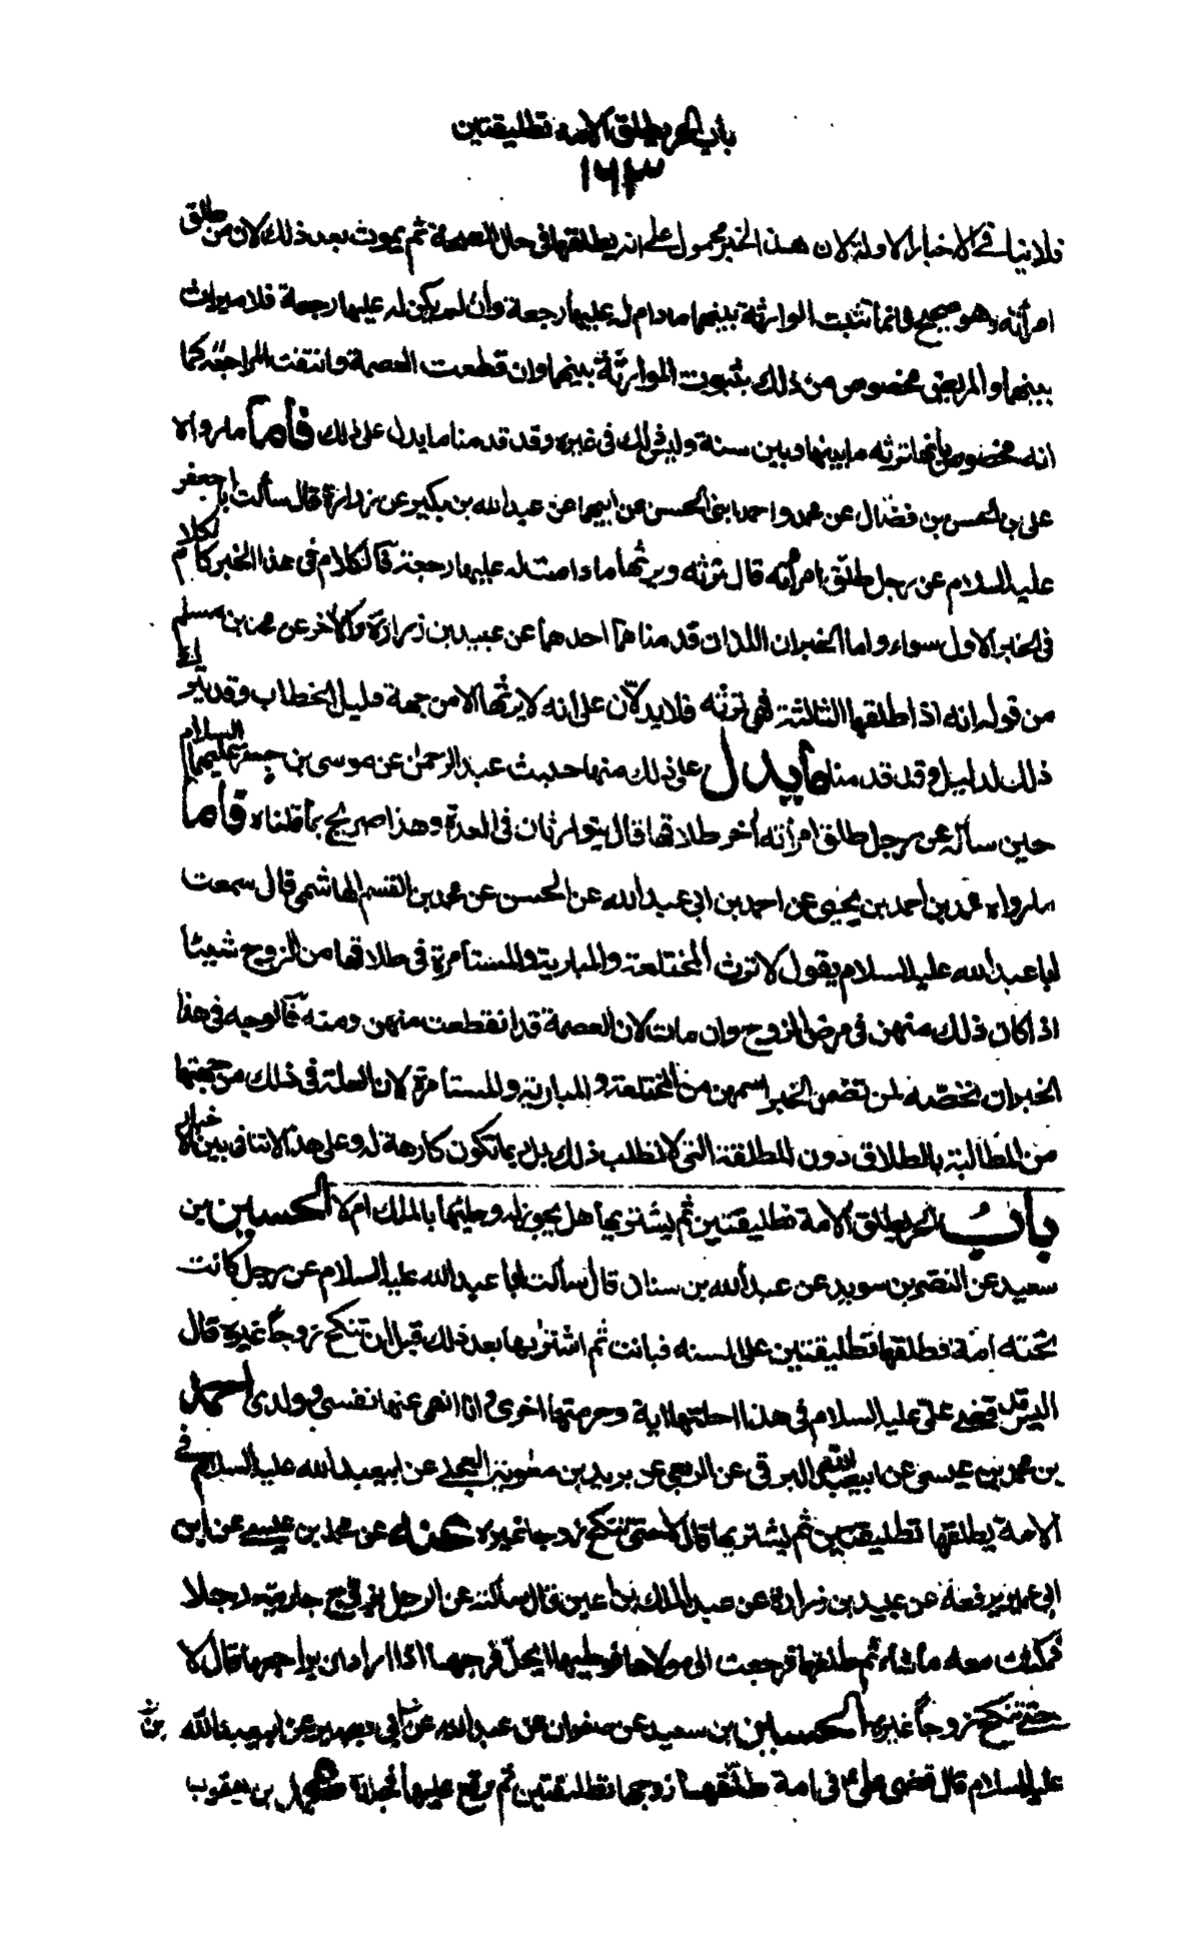 باب الحر يطلق الامة تطليقتين
١٦٣
فلا ينافى الاخبار الاولة لان هذا الخبر محمول على انه يطلقها فى حال الصحة ثم يموت بعد ذلك لان من طلق
امرأته وهو صحيح فانما تثبت الموارثة بينهما مادام له عليها رجعة وان لم يكن له عليها رجعة فلا ميراث
بينهما والمريض مخصوص من ذلك بثبوت الموارثة بينهما وان قطعت العصمة وانتفت المراجعة كما
انه مخصوص بأنها ترثه ما بينها وبين سنة وليس ذلك فى غيره وقد قدمنا ما يدل على ذلك فأما ما رواه
على بن الحسن بن فضال عن محمد واحمد ابنى الحسن عن ابيهما عن عبد الله بن بكير عن زرارة قال سألت ابا جعفر
عليه السلام عن رجل طلق امرأته قال ترثه ويرثها ما دامت له عليها رجعة فالكلام فى هذا الخبر كالكلام
فى الخبر الاول سواء واما الخبران اللذان قدمناهما احدهما عن عبيد بن زرارة والآخر عن محمد بن مسلم
من قوله انه اذا طلقها الثالثة فهى ترثه فلا يدلان على انه لا يرثها الا من جهة دليل الخطاب وقد يترك
ذلك لدليل وقد قدمنا ما يدل على ذلك منها حديث عبد الرحمن عن موسى بن جعفر عليهما السلام
حين سأله عن رجل طلق امرأته آخر طلاقها قال يتوارثان فى العدة وهذا صريح بما قلناه فأما
ما رواه محمد بن أحمد بن يحيى عن احمد بن ابى عبد الله عن الحسن عن محمد بن القسم الهاشمى قال سمعت
ابا عبد الله عليه السلام يقول لا ترث المختلعة والمبارية والمستأمرة فى طلاقها من الزوج شيئا
اذا كان ذلك منهن فى مرض الزوج وان مات لان العصمة قد انقطعت منهن ومنه فالوجه فى هذا
الخبر ان نخصه لمن تضمن الخبر اسمهن من المختلعة والمبارية والمستأمرة لان العلة فى ذلك من جهتها
من المطالبة بالطلاق دون المطلقة التى لا تطلب ذلك بل ربما تكون كارهة له وعلى هذا لا تنافى بين الاخبار
باب الحر يطلق الامة تطليقتين ثم يشتريها هل يجوز له وطيها بالملك ام لا الحسين بن
سعيد عن النضر بن سويد عن عبد الله بن سنان قال سألت ابا عبد الله عليه السلام عن رجل كانت
تحته امة فطلقها تطليقتين على السنه فبانت ثم اشتريها بعد ذلك قبل ان تنكح زوجاً غيره قال
اليس قد قضى على عليه السلام فى هذا احلتها اية وحرمتها اخرى وانا انهى عنها نفسى وولدى احمد
بن محمد بن عيسى عن ابى عبد الله البرقى عن الربعى عن بريد بن معوية العجلى عن ابيعبد الله عليه السلام فى
الامة يطلقها تطليقتين ثم يشتريها قال لا حتى تنكح زوجا غيره عنه عن محمد بن عيسى عن ابن
ابى عمير يرفعه عن عبيد بن زرارة عن عبد الملك بن اعين قال سألته عن الرجل يزوج جاريته رجلا
فمكثت معه ماشاء ثم طلقها فرجعت الى مولاها فوطيها ايحل فرجها اذا اراد ان يراجعها قال لا
حتى تنكح زوجاً غيره الحسين بن سعيد عن صفوان عن عبد الله عن ابى بصير عن ابيعبد الله
عليه السلام قال قضى على فى امة طلقها زوجها تطليقتين ثم وقع عليها فجلده محمد بن يعقوب